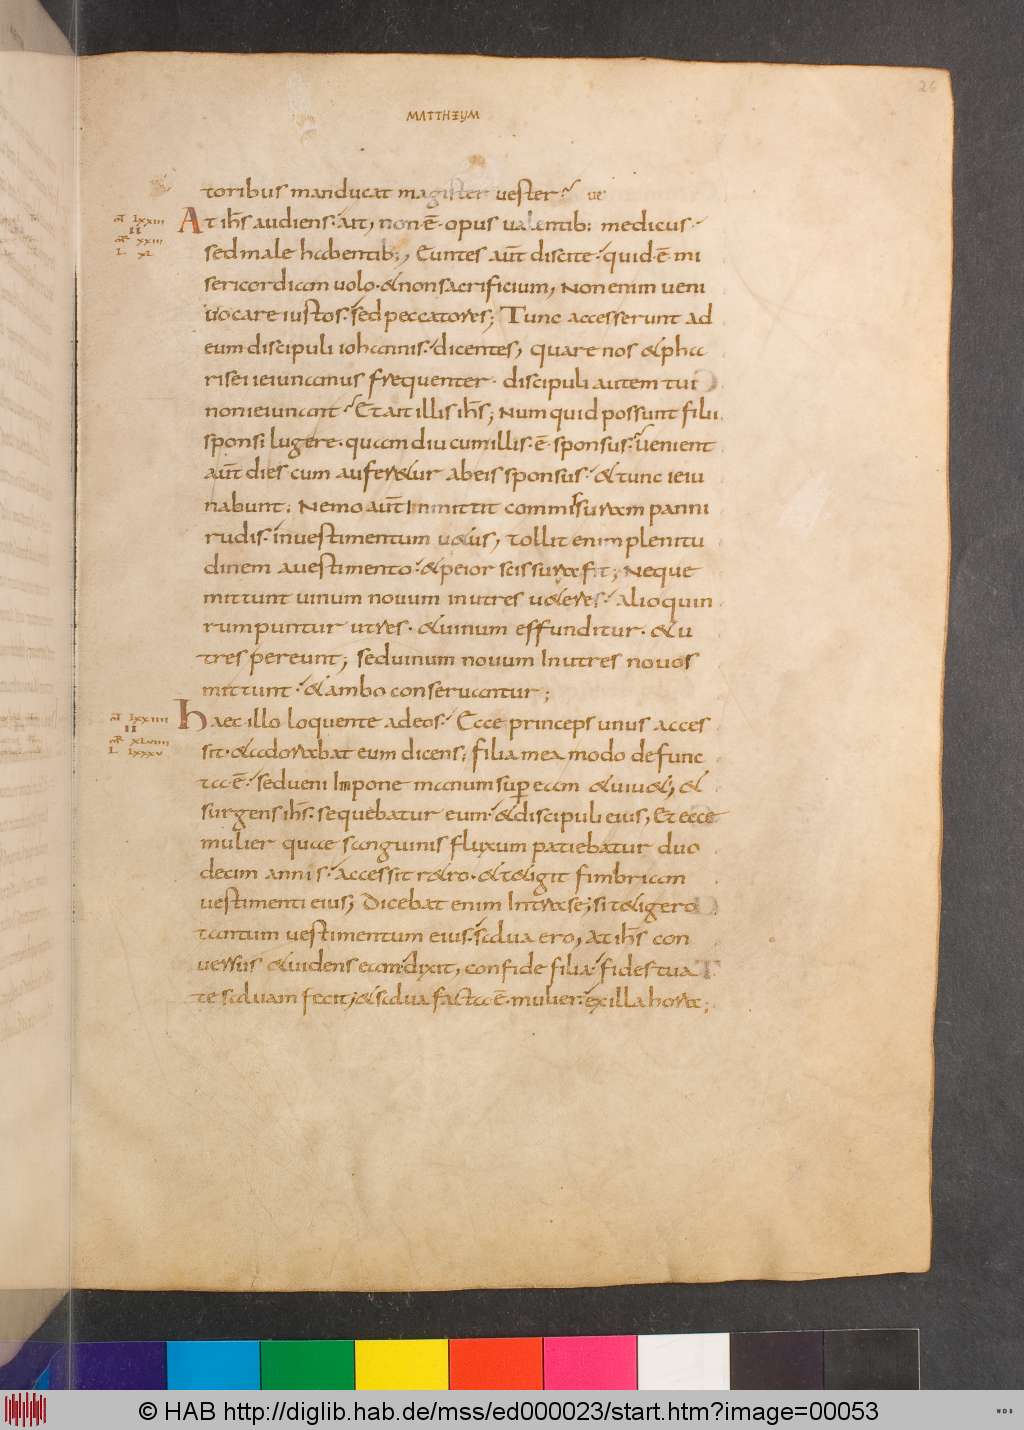 26
MATTHEUM
toribus manducat magister vester? ve
mt lxxiii At ihs audiens. ait, non ē opus valentib; medicus.
II
mr xxiii
L xl sed male habentib;, Euntes aut discite. quid ē mi
sericordiam uolo. & non sacrificium, Non enim ueni
uocare iustos. sed peccatores; Tunc accesserunt ad
eum discipuli iohannis. dicentes, quare nos & pha
risei ieiunamus frequenter. discipuli autem tui
non ieiunant? Et ait illis ihs; Numquid possunt filii
sponsi lugere. quamdiu cum illis. ē sponsus? uenient
aut dies cum auferetur ab eis sponsus. & tunc ieiu
nabunt. Nemo aut inmittit commissuram panni
rudis. in uestimentum uetus, tollit enim plenitu
dinem a uestimento. & peior scissura fit; Neque
mittunt uinum nouum in utres ueteres. alioquin
rumpuntur utres. & uinum effunditur. & u
tres pereunt; sed uinum nouum In utres nouos
mittunt. & ambo conseruantur;
mt lxxiiii Haec illo loquente ad eos. Ecce princeps unus acces
II
mr xlviiii
L lxxxv sit. & adorabat eum dicens; filia mea modo defunc
ta ē. sed ueni Impone manum super eam & uiuet; &
surgens ihs. sequebatur eum. & discipuli eius, Et ecce
mulier quae sanguinis fluxum patiebatur duo
decim annis. accessit retro. & tetigit fimbriam
uestimenti eius; Dicebat enim Intra se; si tetigero
tantum uestimentum eius. salua ero, At ihs con
uersus & uidens eam. dixit, confide filia. fides tua
te saluam fecit; & salua facta ē. mulier. ex illa hora;
© HAB http://diglib.hab.de/mss/ed000023/start.htm?image=00053
WDB